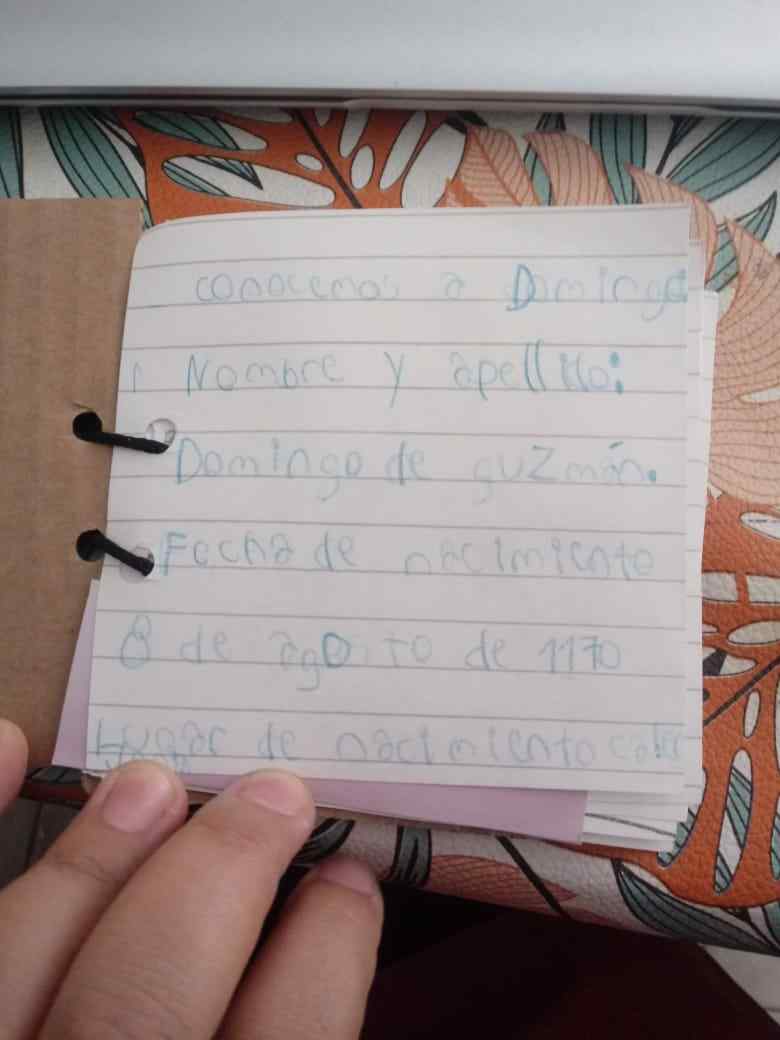 conocemos a Domingo
Nombre y apellido:
Domingo de guzmán.
Fecha de nacimiento
8 de agosto de 1170
Lugar de nacimiento